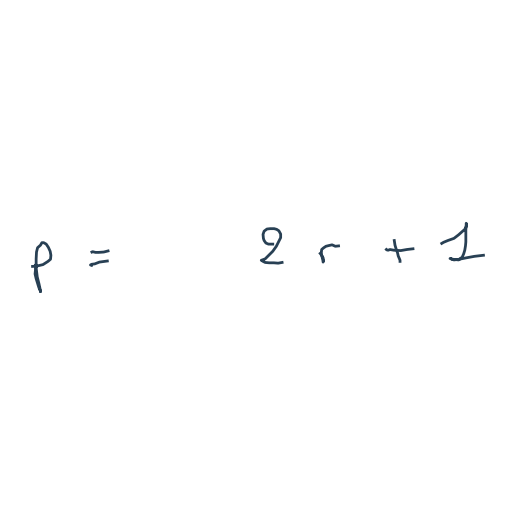 p = 2 r + 1